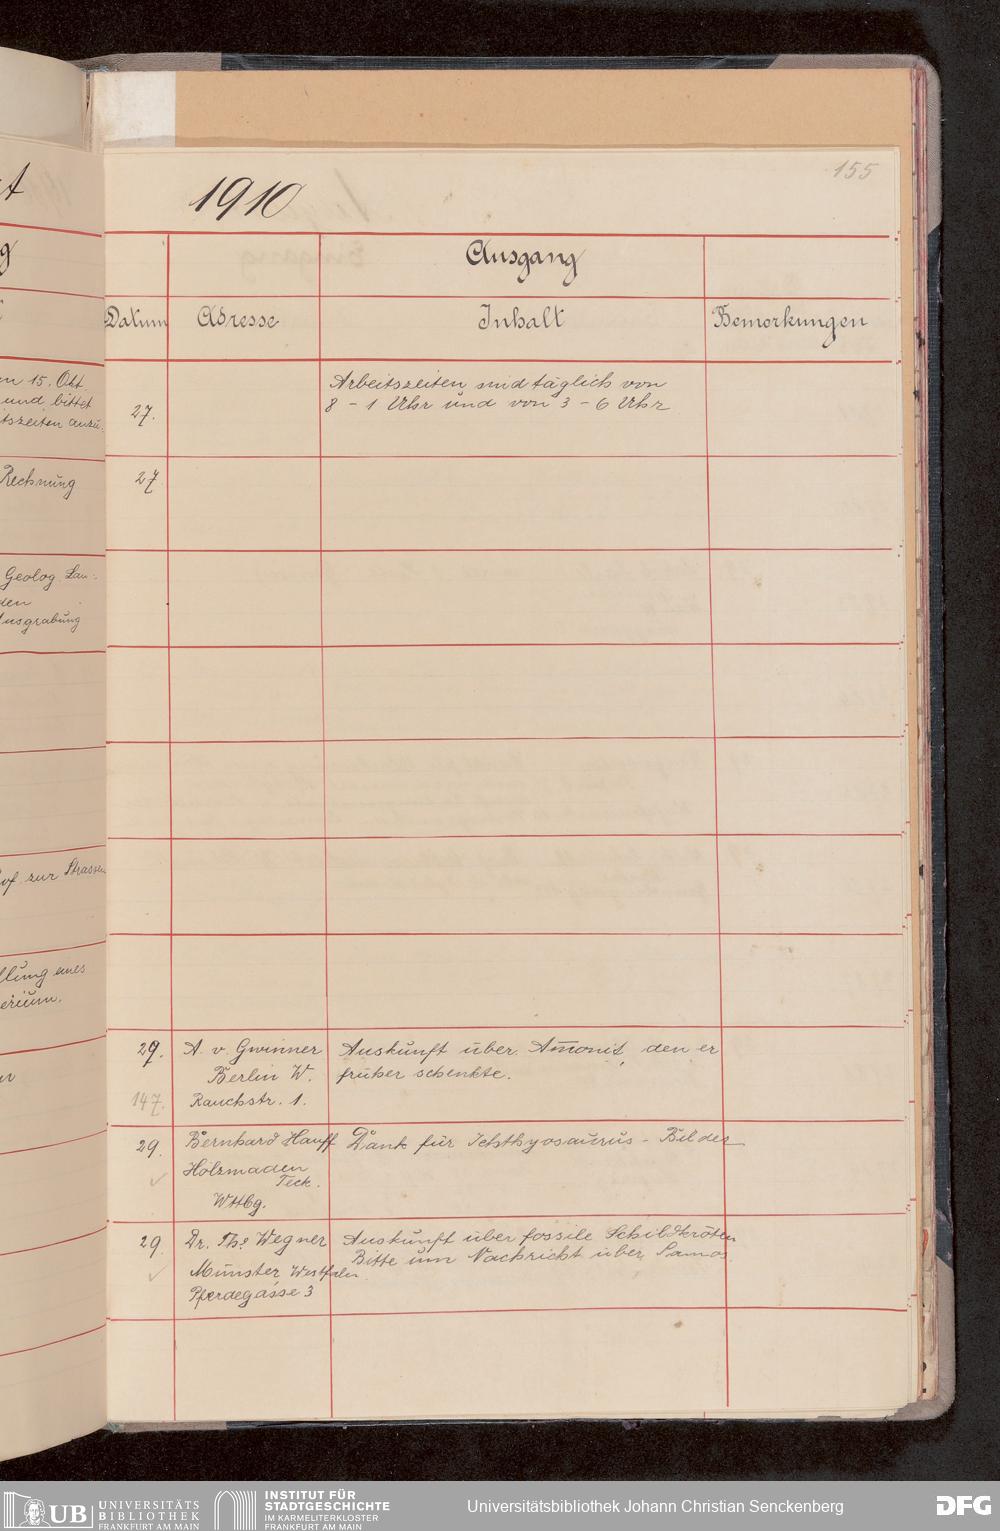 155
1910
Ausgang
Datum Adresse Inhalt Bemerkungen
en 15. Okt.
und bittet
itszeiten anzu-
27.
Arbeitszeiten sind täglich von
8 - 1 Uhr und von 3 - 6 Uhr
Rechnung
27.
Geolog. Lan-
den
Ausgrabung
of. zur Strassen
llung eines
erium.
29. A. v. Gwinner Auskunft über Amonit, den er
Berlin W. früher schenkte.
147. Rauchstr. 1.
29. Bernhard Hauff Dank für Ichthyosaurus - Bilder
Holzmaden
Teck.
Wttbg.
29. Dr. Th. Wegner Auskunft über fossile Schildkröten
Bitte um Nachricht über Samos.
Münster Westfalen
Pferdegasse 3
UB UNIVERSITÄTS
BIBLIOTHEK
FRANKFURT AM MAIN
INSTITUT FÜR
STADTGESCHICHTE
IM KARMELITERKLOSTER
FRANKFURT AM MAIN
Universitätsbibliothek Johann Christian Senckenberg
DFG